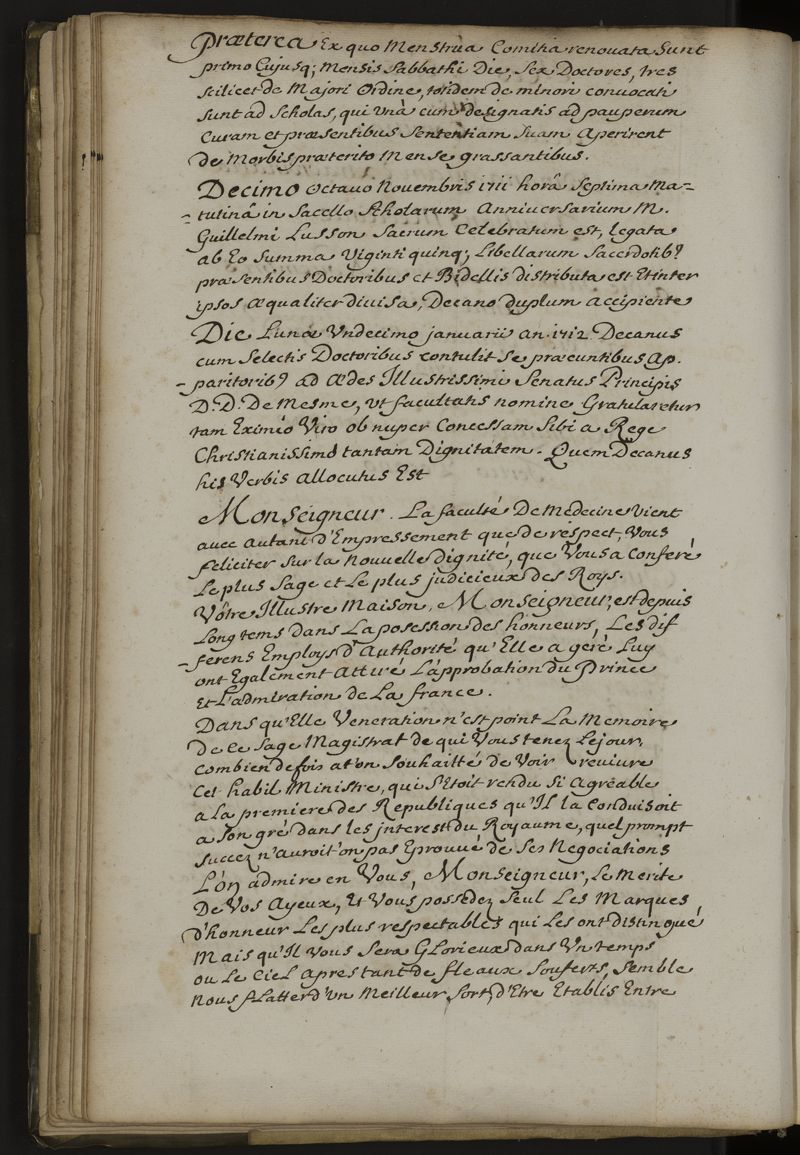 Præterea Ex quo Menstrua Comitia renouata Sunt
primo Cujusq; Mensis Sabbathi Die, Sex Doctores, tres
scilicet de Majori Ordine, totidem de minori conuocati
sunt ad Scholas, qui Unà cum designatis ad pauperum
Curam et præsentibus Sententiam Suam Aperirent
de Morbis præterito Mense grassantibus.
Decimo octauo Nouembris 1711 horâ Septima Ma-
-tutinâ in Sacello Scholarum Anniuersarium M.
Guillelmi Lusson Sacrum Celebratum est, legata
ab Eo Summa Viginti quinq; Libellarum Sacerdotib9
præsentibus Doctoribus et Bidellis distributa est Et inter
ipsos æqualiter diuisa, Decano duplum accipiente
Die Lunæ Undecimo januarii an. 1712 Decanus
cum Selectis Doctoribus contulit Se præeuntibus Ap-
-paritorib9 ad Ædes Illustrissimi Senatus Principis
D.D. De Mesme, Vt facultatis nomine Gratularetur
tam Eximio Viro ob nuper Concessam Sibi a Rege
Christianissimo tantam Dignitatem. Quem Decanus
his Verbis allocutus Est
Monseigneur. La faculté De Médecine Vient
auec autant d'Empressement que de réspect, Vous
feliciter Sur la Nouuelle dignité, que Vous a Conferé
Le plus Sage et Le plus judicieux des Roys.
Vôtre Illustre Maison, Monseigneur, est depuis
Long tems Dans La posession des honneurs, Les dif
-ferens Employs d'Authorité qu'Elle a geré Luy
ont Egalement Attiré L'approbation du Prince
Et L'admiration de La france.
Dans qu'Elle Veneration n'est point La Memoire
de Ce Sage Magistrat de qui Vous tenez Le jour,
Combien de fois at'on Souhaitté de Voir reuiure
Cet habil Ministre, qui S'Etoit rendu Si Agréable
a La premiere des Republiques qu'Il la Conduisoit
a Son gré dans les jnterest du Royaume, quel prompt
Succez n'auroit'on pas Eprouué de Ses Negociations
L'on admire en Vous, Monseigneur, Le Merite
De Vos Ayeux, Et Vous possedez Seul Les Marques
d'honneur Les plus respectables qui Les ont distingué
Mais qu'Il Vous Sera Glorieux dans Un temps
ou Le Ciel apres tant de fleaux Souferts, Semble
Nous flatter d'Un Meilleur Sort, d'Etre Etablis Entre